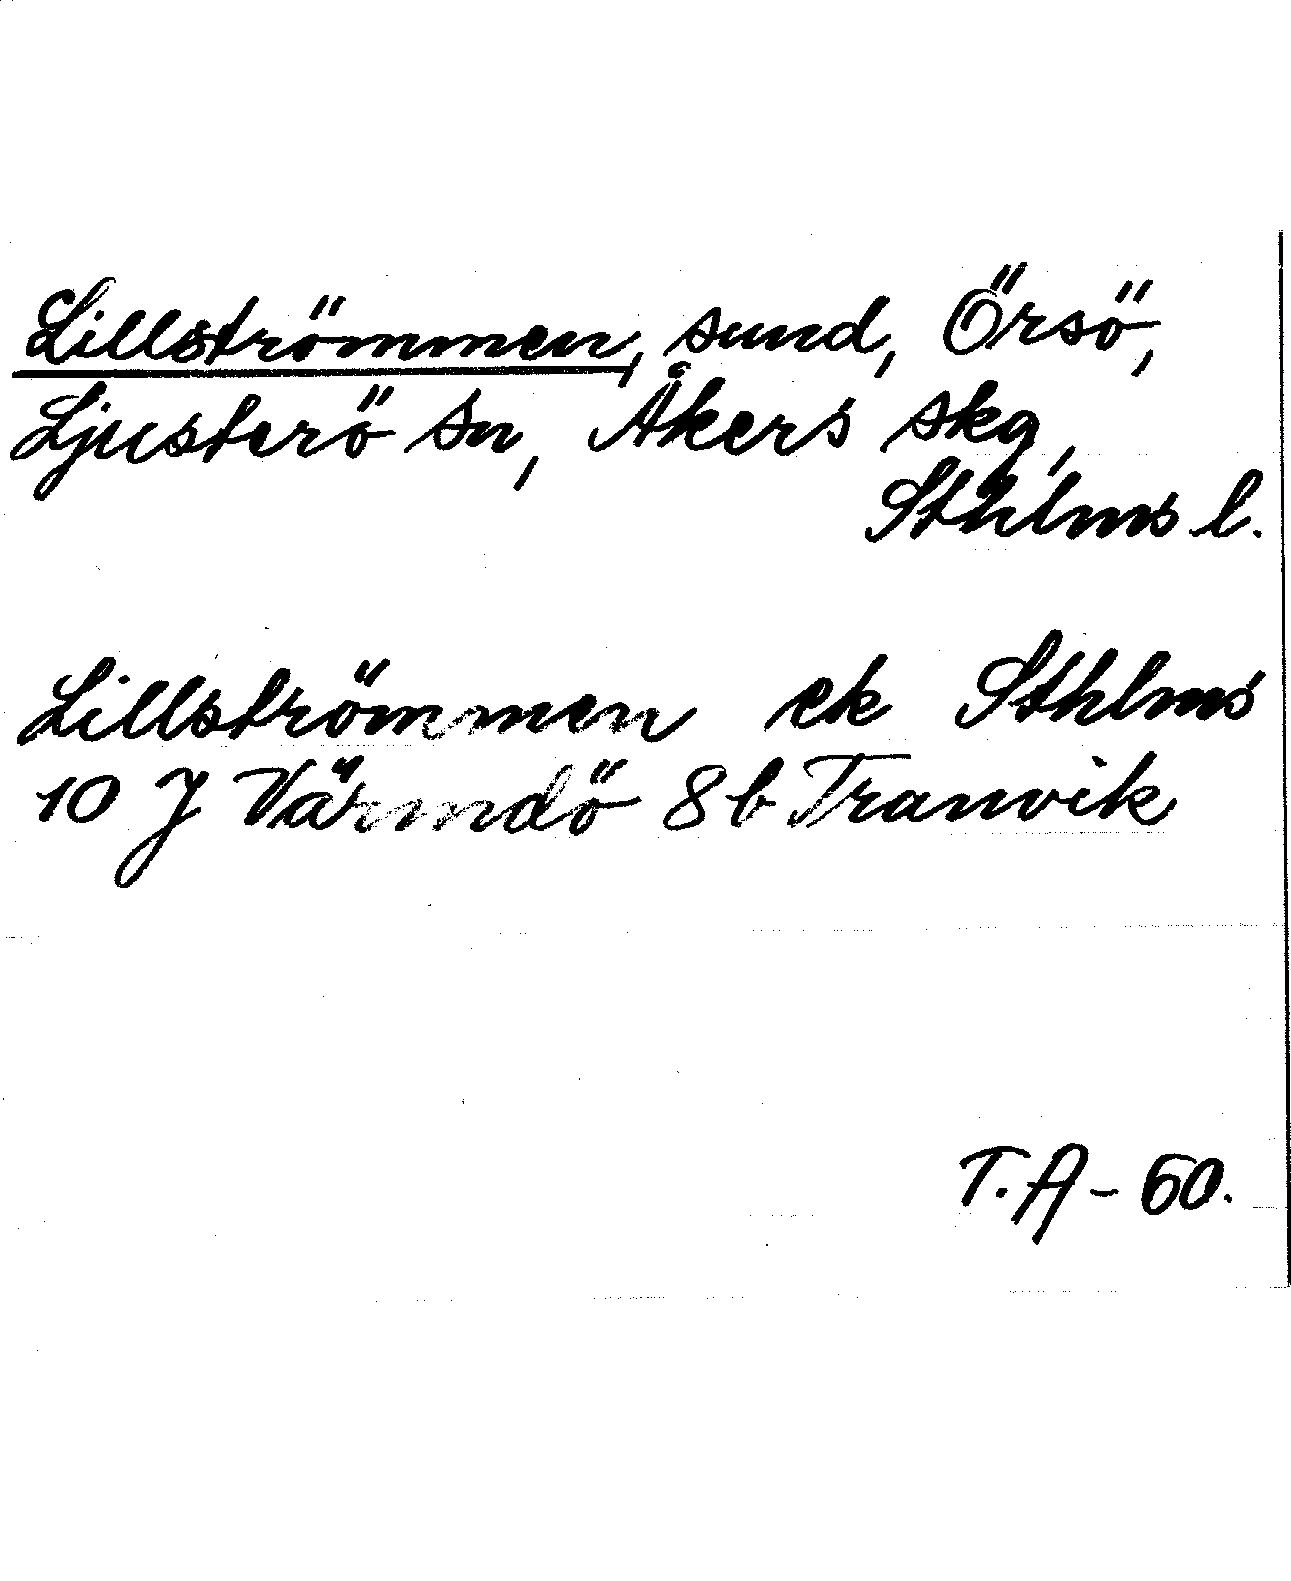 Lillströmmen, sund, Örsö,
Ljusterö sn, Åkers skg,
Sthlms l.
Lillströmmen ek Sthlms
10 J Värmdö 8b Tranvik
T.A - 60.